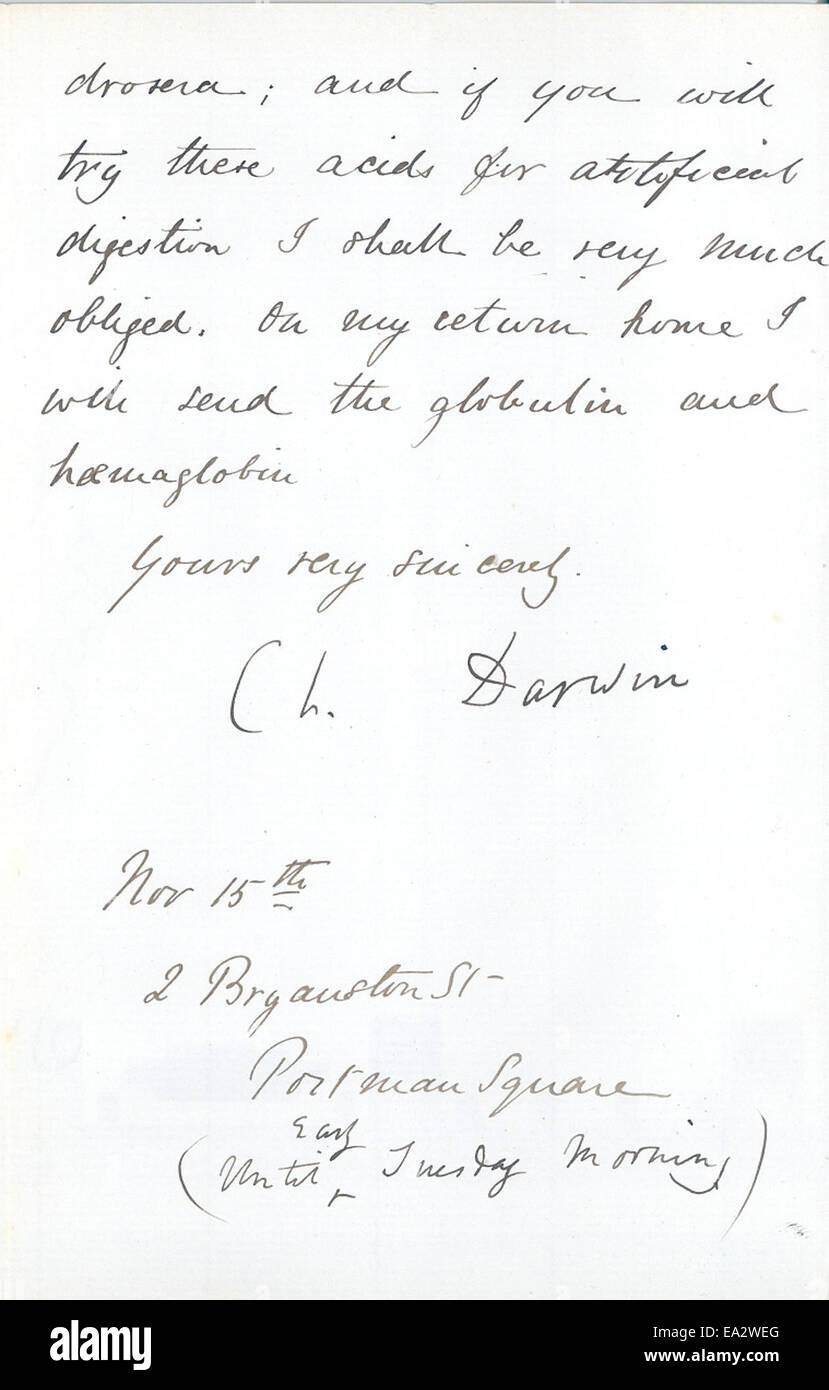 drosera; and if you will
try these acids for artificial
digestion I shall be very much
obliged. On my return home I
will send the globulin and
hæmaglobin
Yours very sincerely.
Ch. Darwin
Nov 15th
2 Bryanston St
Portman Square
Early
(Until Tuesday Morning)
alamy
Image ID: EA2WEG
www.alamy.com